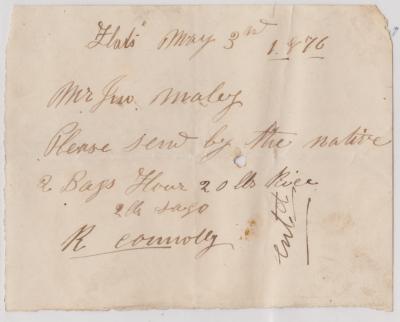 Flats May 3rd 1876
Mr Jno Maley
Please send by the native
2 Bags Flour 20 lb Rice
2 lb sago
R Connolly